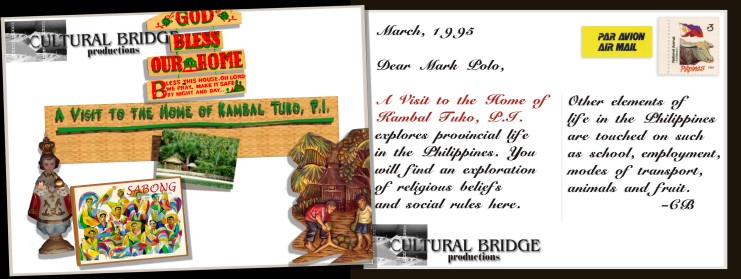 GOD
BLESS
OUR HOME
BLESS THIS HOUSE, OH LORD
WE PRAY, MAKE IT SAFE
BY NIGHT AND DAY...
CULTURAL BRIDGE
productions
A VISIT TO THE HOME OF KAMBAL TUKO, P.I.
SABONG
March, 1995
Dear Mark Polo,
A Visit to the Home of
Kambal Tuko, P.I.
explores provincial life
in the Philippines. You
will find an exploration
of religious beliefs
and social rules here.
PAR AVION
AIR MAIL
Pilipinas
Other elements of
life in the Philippines
are touched on such
as school, employment,
modes of transport,
animals and fruit.
-CB
CULTURAL BRIDGE
productions